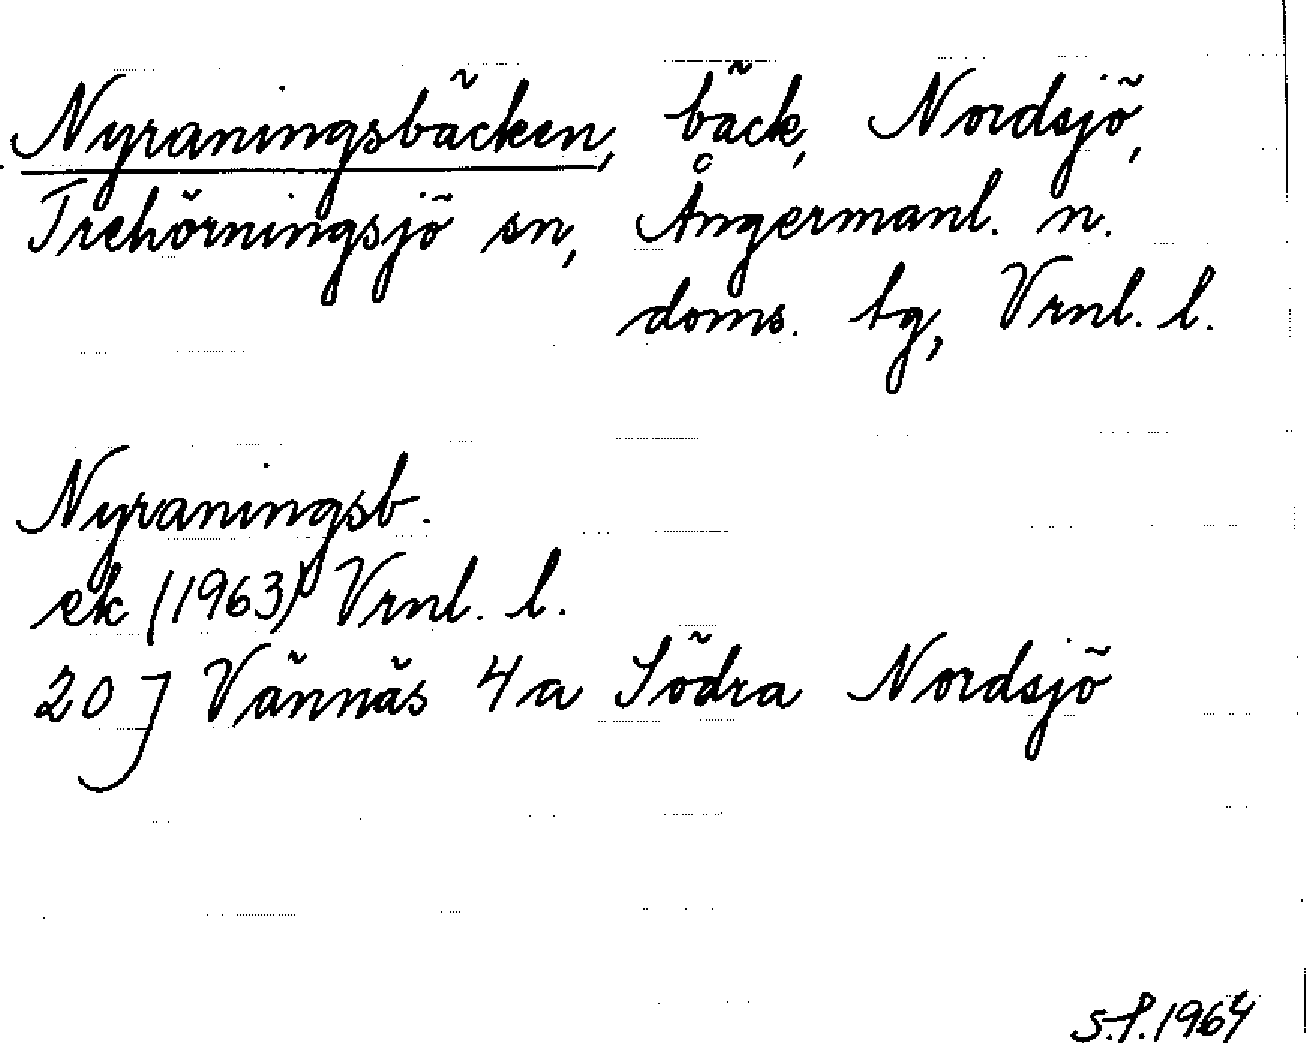 Nyraningsbäcken, bäck, Nordsjö,
Trehörningsjö sn, Ångermanl. n.
doms. tg, Vrnl. l.
Nyraningsb.
ek (1963) Vrnl. l.
20 J Vännäs 4a Södra Nordsjö
S.P. 1964